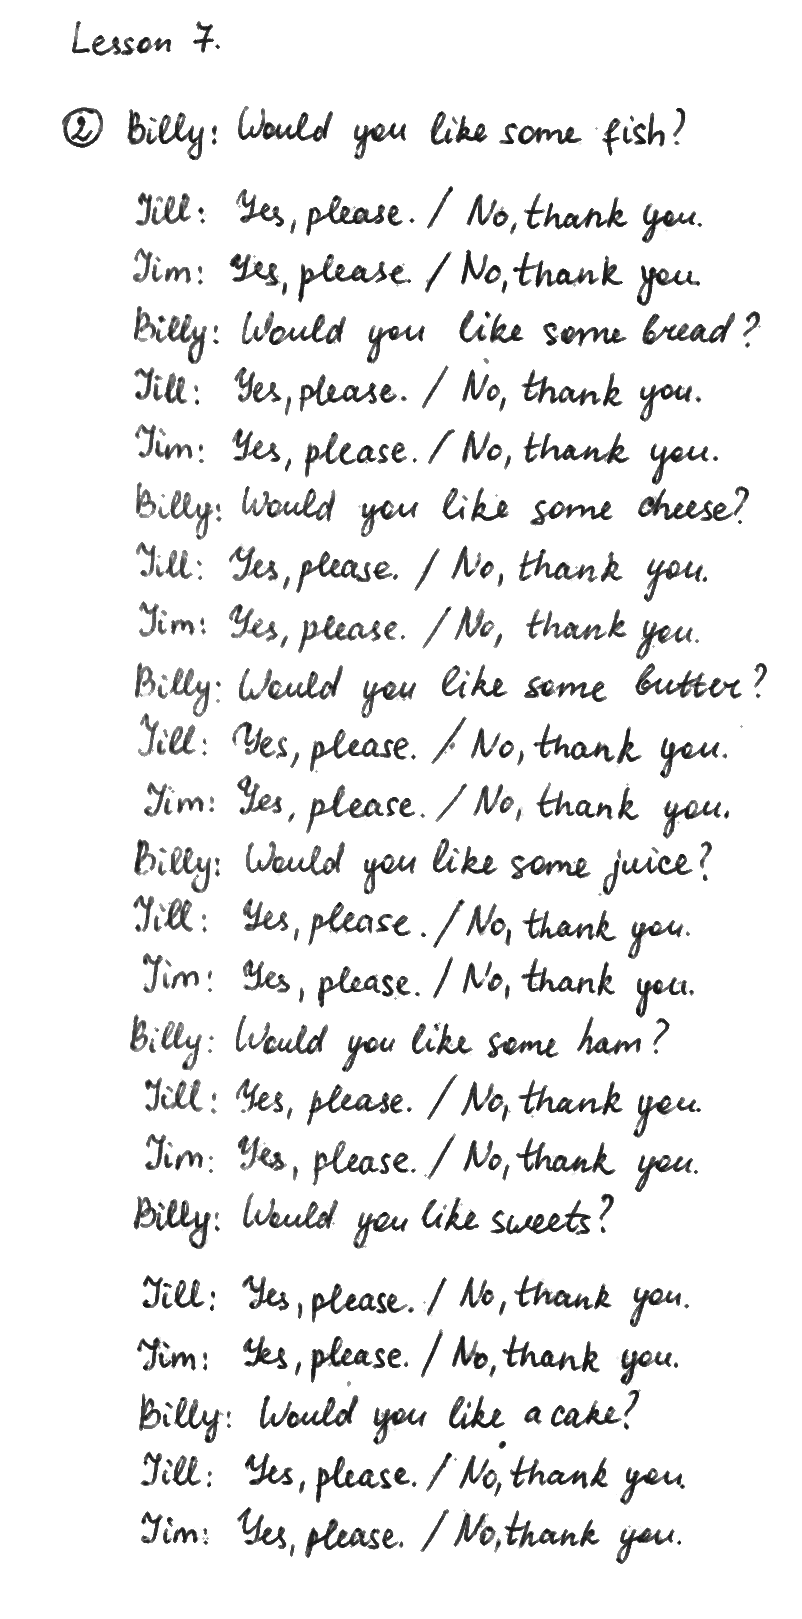 Lesson 7.
② Billy: Would you like some fish?
Jill: Yes, please. / No, thank you.
Jim: Yes, please. / No, thank you.
Billy: Would you like some bread?
Jill: Yes, please. / No, thank you.
Jim: Yes, please. / No, thank you.
Billy: Would you like some cheese?
Jill: Yes, please. / No, thank you.
Jim: Yes, please. / No, thank you.
Billy: Would you like some butter?
Jill: Yes, please. / No, thank you.
Jim: Yes, please. / No, thank you.
Billy: Would you like some juice?
Jill: Yes, please. / No, thank you.
Jim: Yes, please. / No, thank you.
Billy: Would you like some ham?
Jill: Yes, please. / No, thank you.
Jim: Yes, please. / No, thank you.
Billy: Would you like sweets?
Jill: Yes, please. / No, thank you.
Jim: Yes, please. / No, thank you.
Billy: Would you like a cake?
Jill: Yes, please. / No, thank you.
Jim: Yes, please. / No, thank you.